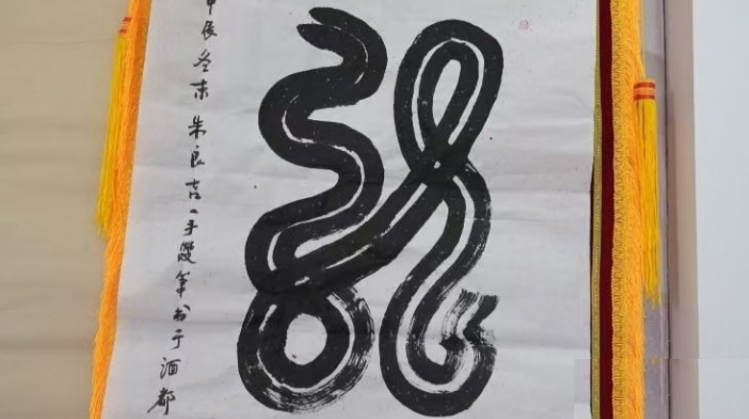 甲辰冬末朱良吉一手雙筆书于酒都